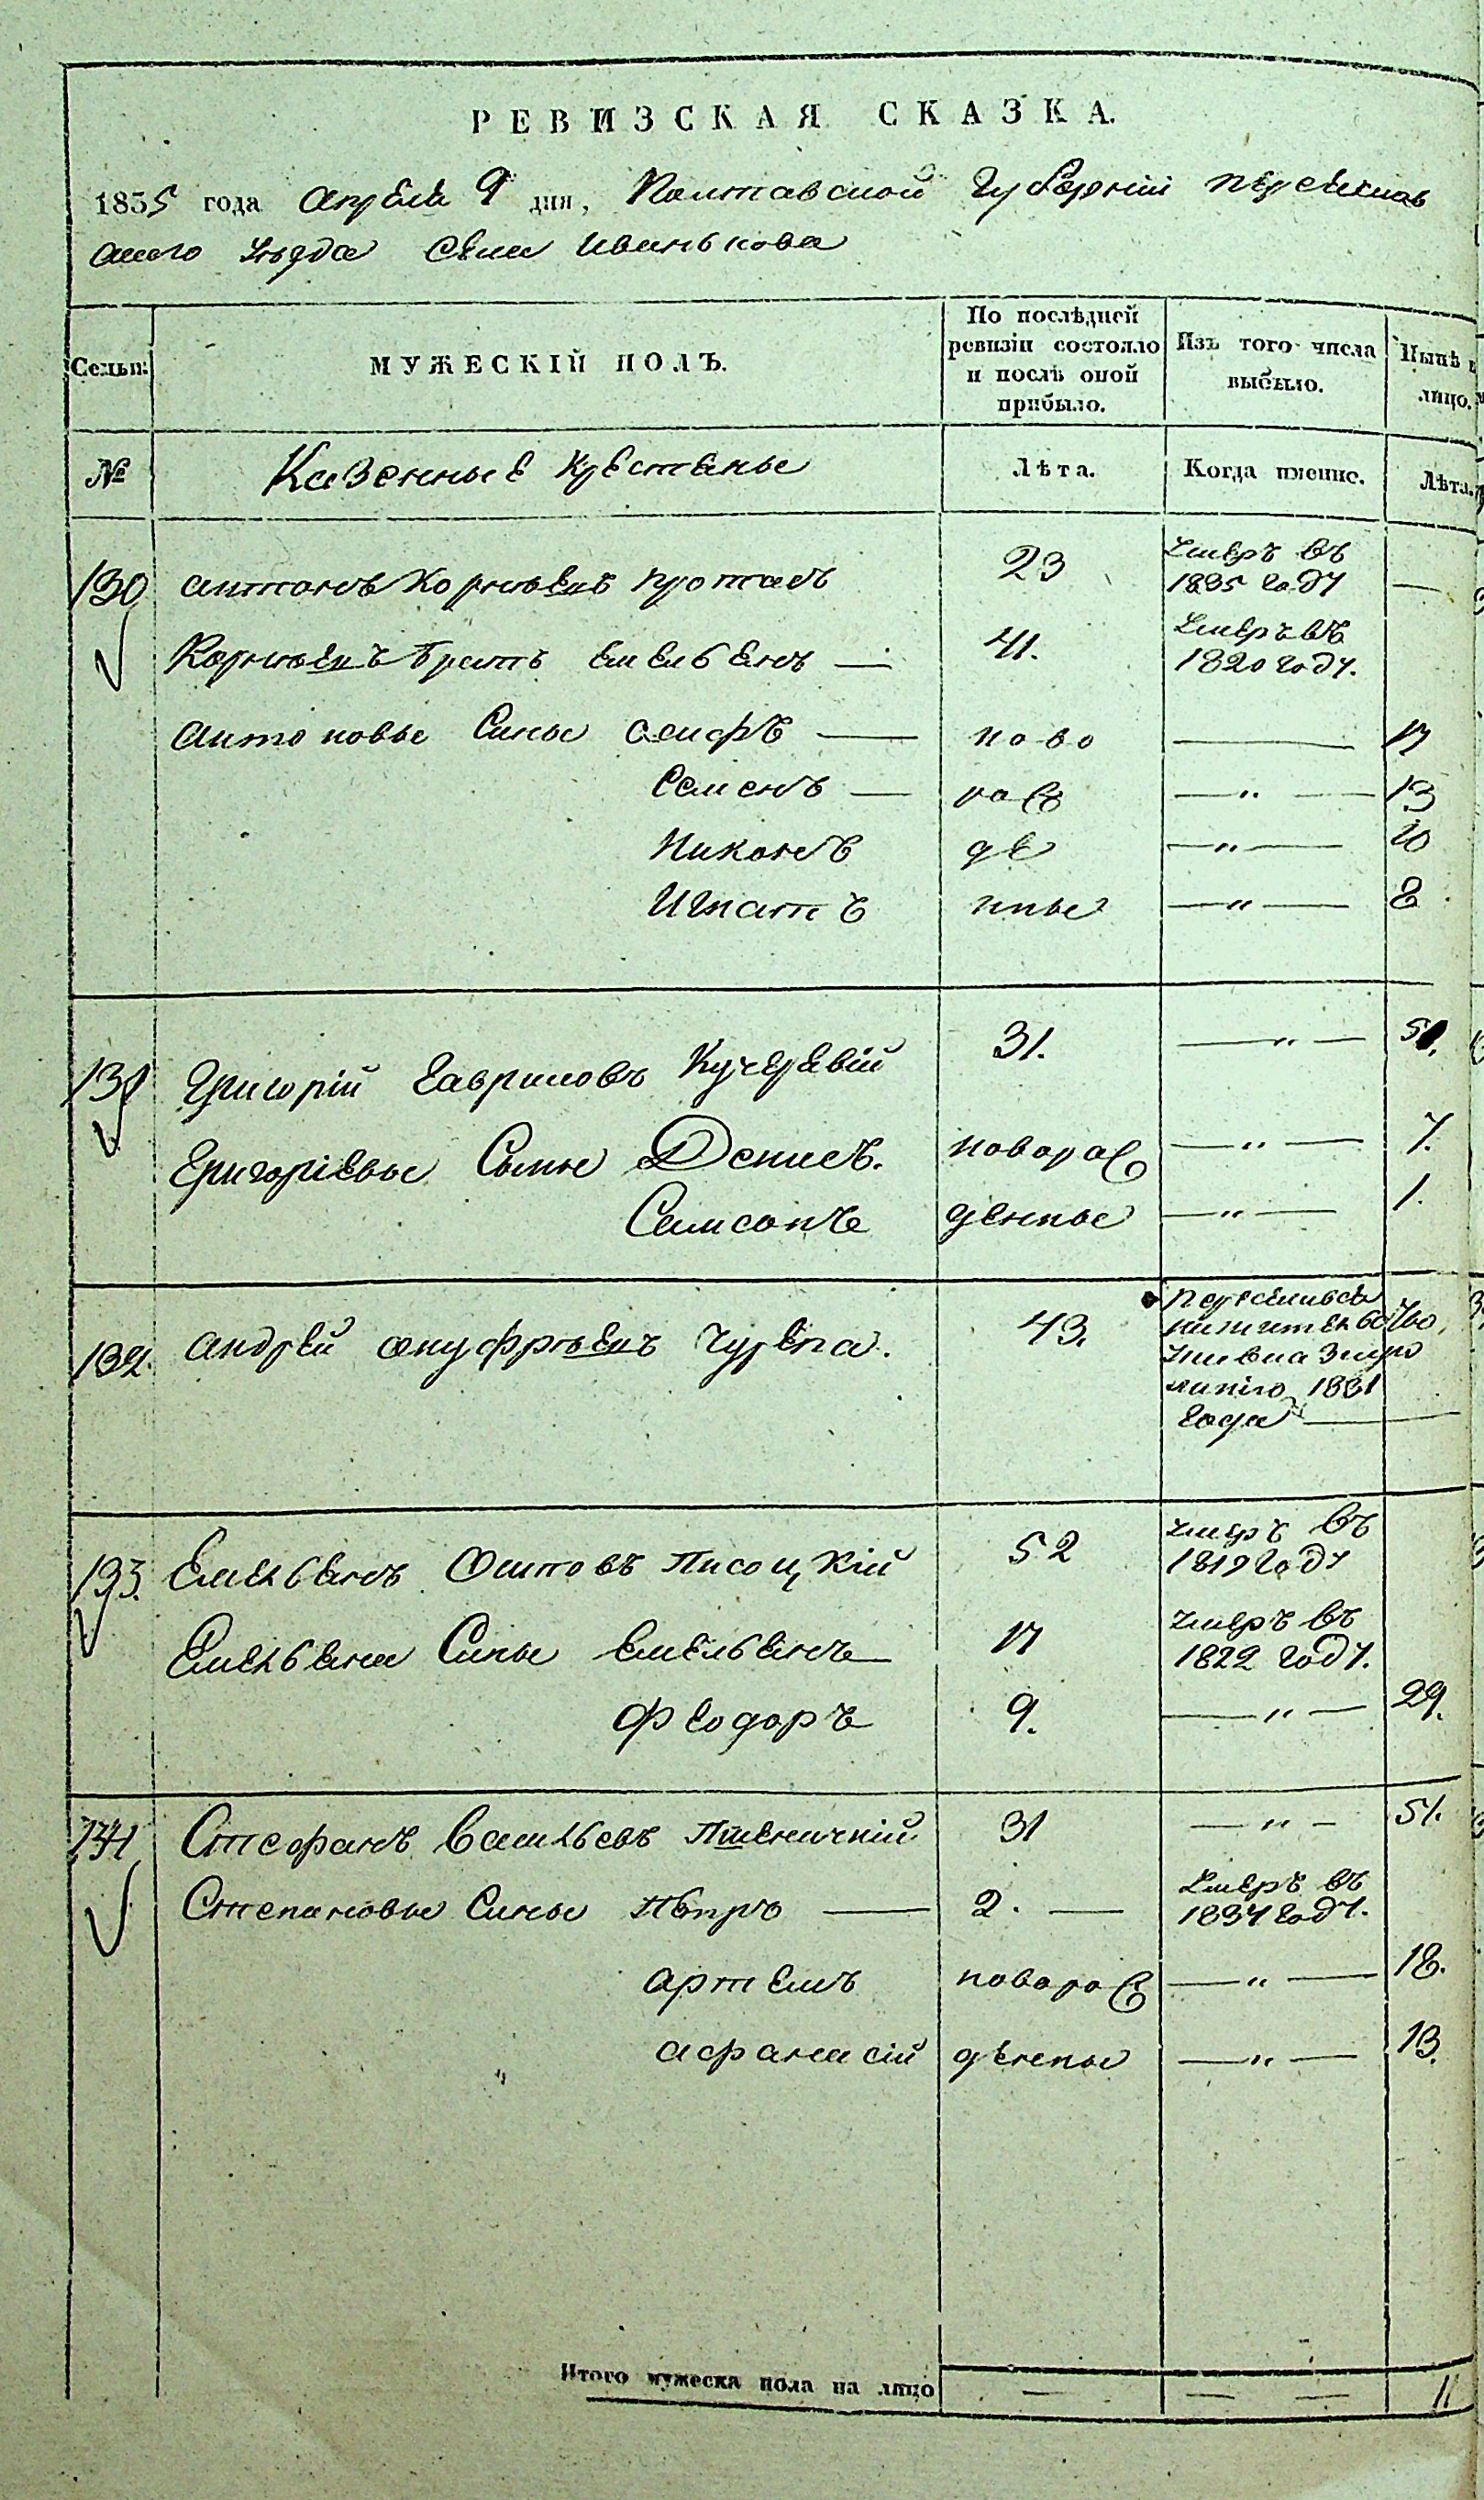 РЕВИЗСКАЯ СКАЗКА.
1835 года Апреля 9 дня, Полтавской Губерніи Переяслав
скаго Уезда Села Иванькова
Семьи МУЖЕСКІЙ ПОЛЪ. По послѣдней ревизіи состояло и послѣ оной прибыло. Изъ того числа выбыло. Нынѣ на лицо.
№ Казенные Крестяне Лѣта. Когда именно. Лѣта.
130 Антонъ Корнѣевъ 23 Умеръ въ 1835 году —
Корнѣевъ братъ Емельянъ — 41. Умеръ въ 1820 году.
Антоновы Сины Осифъ — ново — 17
Семенъ — рож — " — 13
Никонъ де — " — 10
Игнатъ нные — " — 8
131 Григорій Гавриловъ Кучерявій 31. — " — 51.
Григоріевые Сыны Денисъ. новорож — " — 7.
Самсонъ денные — " — 1.
132. Андрей Онуфрѣевъ Чурепа. 43. переселився на жительство 1831 года —
133. Емельянъ Осиповъ Писоцкій 52 Умеръ въ 1819 году
Емельяна Сины Емельянъ — 17 Умеръ въ 1822 году.
Феодоръ 9. — " — 29.
134 Стефанъ Васильевъ Пшеничній 31 — " — 51.
Степановы Сины Пётръ — 2. — Умеръ въ 1834 году.
Артемъ новорож — " — 18.
Афанасій денные — " — 13.
Итого мужеска пола на лицо — — — 11